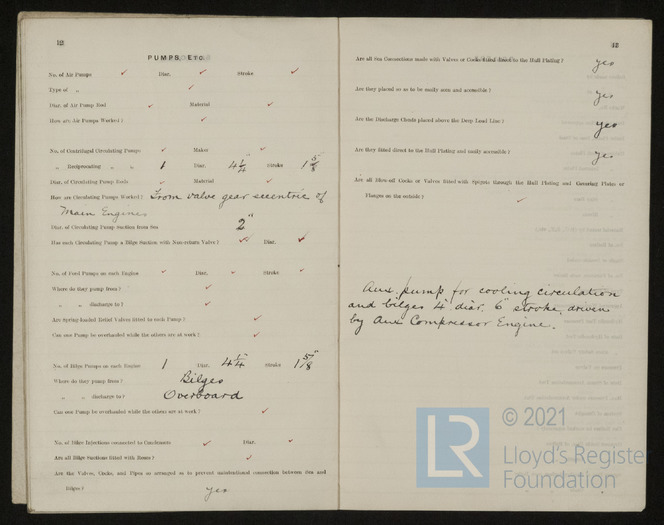 12
PUMPS, ETC.
No. of Air Pumps ✓ Diar. ✓ Stroke ✓
Type of „ ✓
Diar. of Air Pump Rod ✓ Material ✓
How are Air Pumps Worked? ✓
No. of Centrifugal Circulating Pumps ✓ Maker ✓
„ Reciprocating „ „ 1 Diar. 4¼" Stroke 1⅝"
Diar. of Circulating Pump Rods ✓ Material ✓
How are Circulating Pumps Worked? From valve gear eccentric of
Main Engines
Diar. of Circulating Pump Suction from Sea 2"
Has each Circulating Pump a Bilge Suction with Non-return Valve? ✓ Diar. ✓
No. of Feed Pumps on each Engine ✓ Diar. ✓ Stroke ✓
Where do they pump from? ✓
„ „ discharge to? ✓
Are Spring-loaded Relief Valves fitted to each Pump? ✓
Can one Pump be overhauled while the others are at work? ✓
No. of Bilge Pumps on each Engine 1 Diar. 4¼" Stroke 1⅝"
Where do they pump from? Bilges
„ „ discharge to? Overboard
Can one Pump be overhauled while the others are at work? ✓
No. of Bilge Injections connected to Condensers ✓ Diar. ✓
Are all Bilge Suctions fitted with Roses? ✓
Are the Valves, Cocks, and Pipes so arranged as to prevent unintentional connection between Sea and
Bilges? yes
13
Are all Sea Connections made with Valves or Cocks fitted direct to the Hull Plating? yes
Are they placed so as to be easily seen and accessible? yes
Are the Discharge Chests placed above the Deep Load Line? yes
Are they fitted direct to the Hull Plating and easily accessible? yes
Are all Blow-off Cocks or Valves fitted with Spigots through the Hull Plating and Covering Plates or
Flanges on the outside? ✓
Aux. pump for cooling circulation
and bilges 4" diar. 6" stroke, driven
by Aux Compressor Engine.
© 2021
LR Lloyd's Register
Foundation